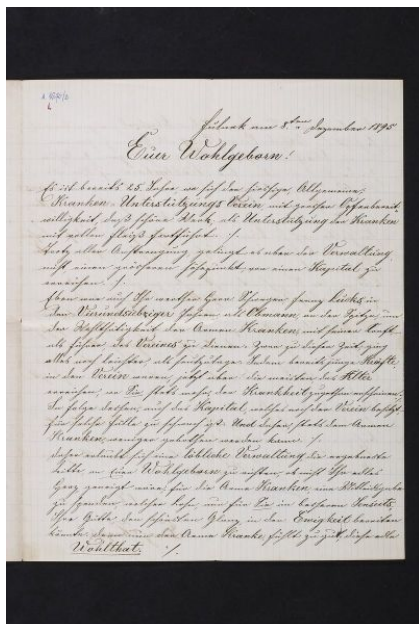 Fulnek am 8.ten Dezember 1895
Euer Wohlgeborn!
Es ist bereits 25 Jahre, wo sich der hiesige, Allgemeine,
Kranken-Unterstützungs Verein mit großer Opferbereit-
willigkeit, daß schöne Werk, als Unterstützung der Kranken
mit vollen Fleiß fortführt ./.
Trotz allen Anstrengung gelingt es aber der Verwaltung
nicht einen größeren von einen Kapital zu
erreichen ./.
Eben war auch Ihr werther Herr Franz
in
den Vierundsiebziger Jahren als Obmann, an der Spitze, um
der Wohlthätigkeit den Armen Kranken, mit seiner Kraft
als Führer des Vereines zu dienen. Zwar zu dieser Zeit, ging
alles noch leichter als heutzutage. Indem bereits junge Kräfte,
in den Verein waren, jetzt aber die meisten das Alter
erreichen, wo Sie stets mehr, der Krankheit
In Folge dessen, auch das Kapital, welches noch der Verein besitzt
für solche Fälle zu schwach ist. Und daher, stets den Armen
Kranken, weniger geboten werden kann ./.
Daher erlaubt sich eine Löbliche Verwaltung die ergebenste
Bitte an Euer Wohlgeborn zu richten, ob nicht Ihr edles
Herz geneigt wäre, für die Arme Kranken, eine
zu spenden, welcher Lohn, nur für Sie im besseren Jenseits,
Ihre Güte, den schönsten Glanz, in der Ewigkeit bereiten
könnte, denn nur der Arme Kranke, fühlt zu gut, diese edle
Wohlthat. ./.